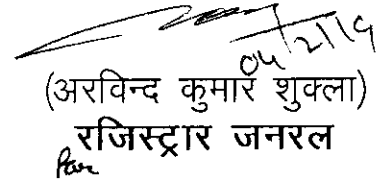 04/2/19
(अरविन्द कुमार शुक्ला)
रजिस्ट्रार जनरल